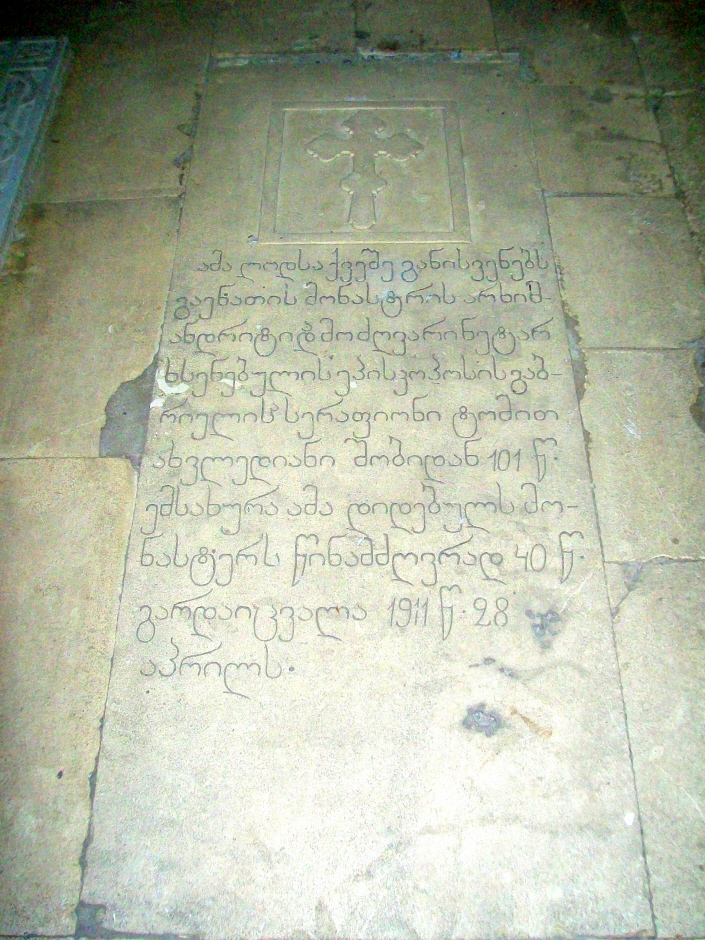 ამა ლოდსა ქვეშე განისვენებს
გაენათის მონასტრის არხიმ-
ანდრიტი დ მოძღვარი ნეტარ
ხსენებულის ეპისკოპოსის გაბ-
რიელის სერაფიონი ტომით
ახვლედიანი შობიდან 101 წ.
ემსახურა ამა დიდებულს მო-
ნასტერს წინამძღვრად 40 წ.
გარდაიცვალა 1911 წ. 28
აპრილს.